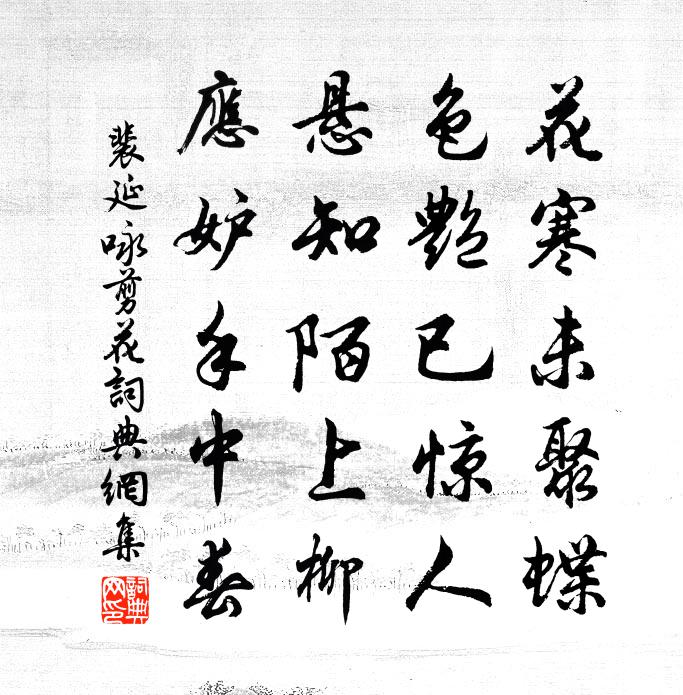 花寒未聚蝶
色艷已惊人
悬知陌上柳
應妒手中春
裴延咏剪花詞典網集
詞典網印